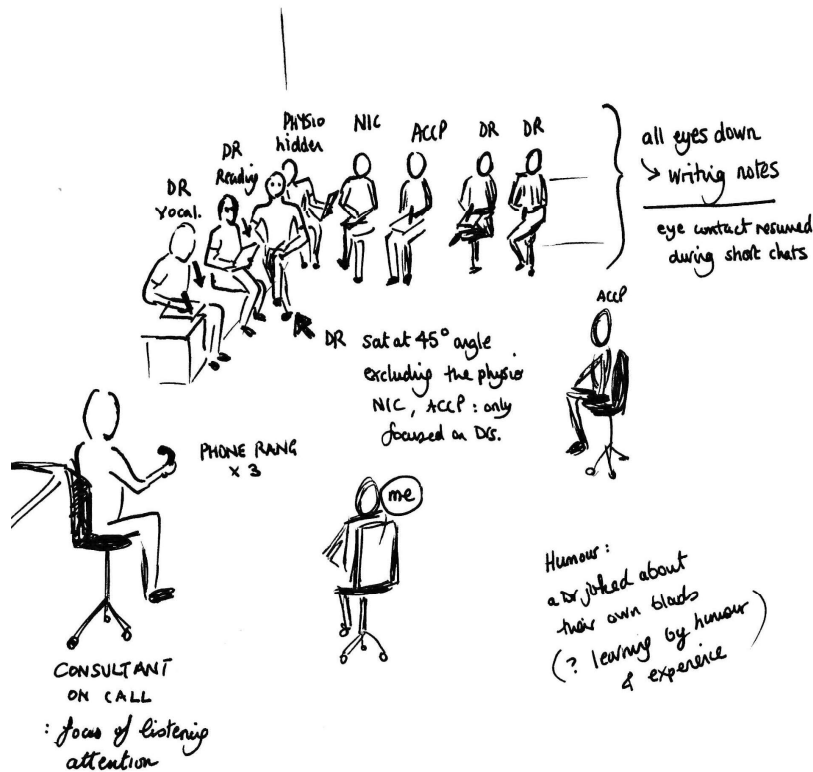 DR
Vocal.
DR
Reading
PHYSIO
hidden
NIC
ACCP
DR
DR
all eyes down
↳ writing notes
eye contact resumed
during short chats
ACCP
DR sat at 45° angle
excluding the physio
NIC, ACCP : only
focused on DRs.
PHONE RANG
x 3
me
CONSULTANT
ON CALL
: focus of listening
attention
Humour:
a Dr joked about
their own bloods
(? learning by humour
& experience)